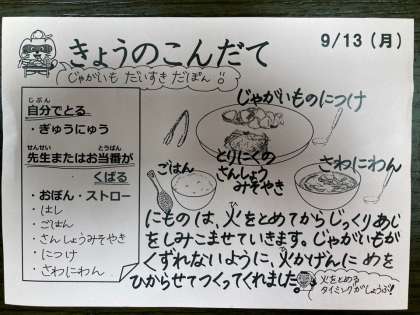 きょうのこんだて
9/13（月）
じゃがいも だいすき だぽん
じぶん
自分でとる
・ぎゅうにゅう
せんせい とうばん
先生またはお当番が
くばる
・おぼん・ストロー
・はし
・ごはん
・さんしょうみそやき
・につけ
・さわにわん
じゃがいものにつけ
とりにくの
さんしょう
みそやき
ごはん
さわにわん
にものは、火をとめてからじっくりあじ
をしみこませていきます。じゃがいもが
くずれないように、火かげんにめを
ひからせてつくってくれました。
火をとめる
タイミングがしょうぶ!